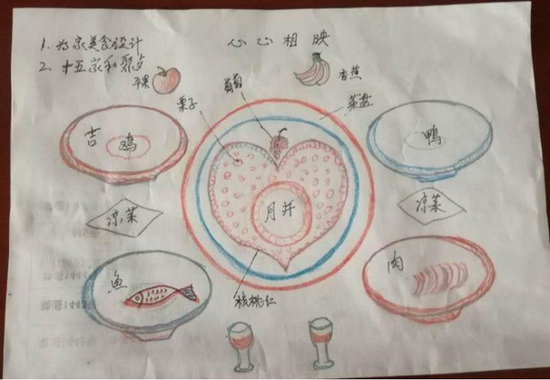 1. 为家美食设计
心心相映
2. 十五家和聚
苹果
香蕉
葡萄
栗子
菜盘
吉 鸡
鸭
月并
凉菜
凉菜
鱼
肉
核桃仁